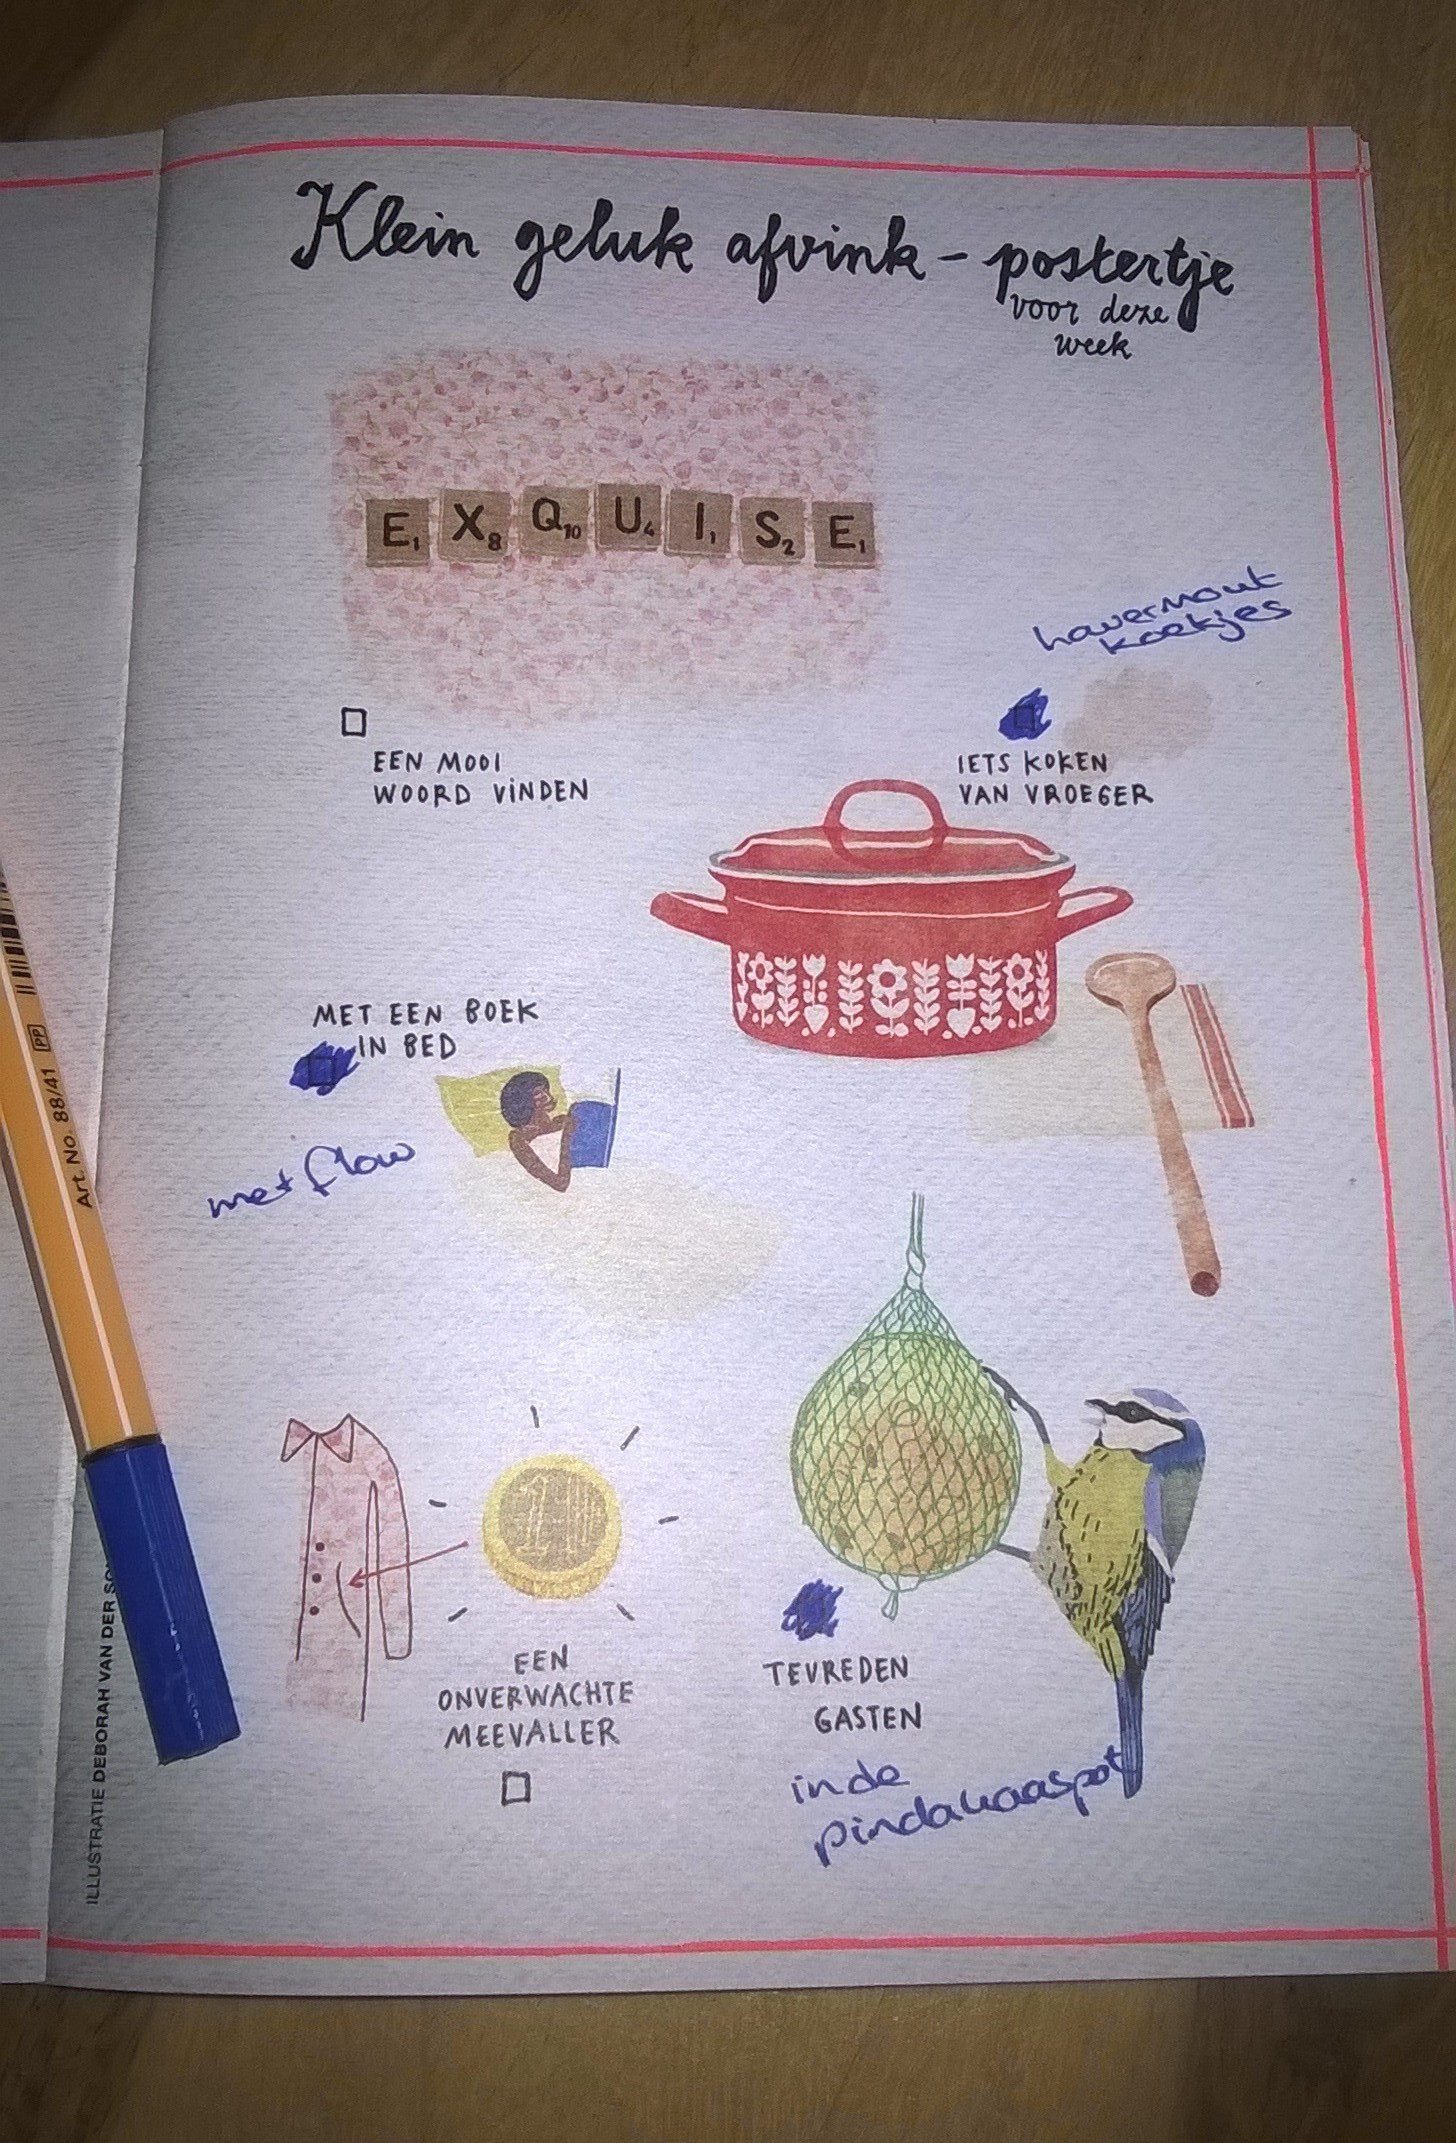 Klein geluk afvink - postertje
voor deze
week
E1 X8 Q10 U4 I1 S2 E1
EEN MOOI
WOORD VINDEN
havermout
koekjes
IETS KOKEN
VAN VROEGER
MET EEN BOEK
IN BED
met flow
EEN
ONVERWACHTE
MEEVALLER
1
TEVREDEN
GASTEN
in de
pindakaaspot
Art. No. 88/41 PP
ILLUSTRATIE DEBORAH VAN DER